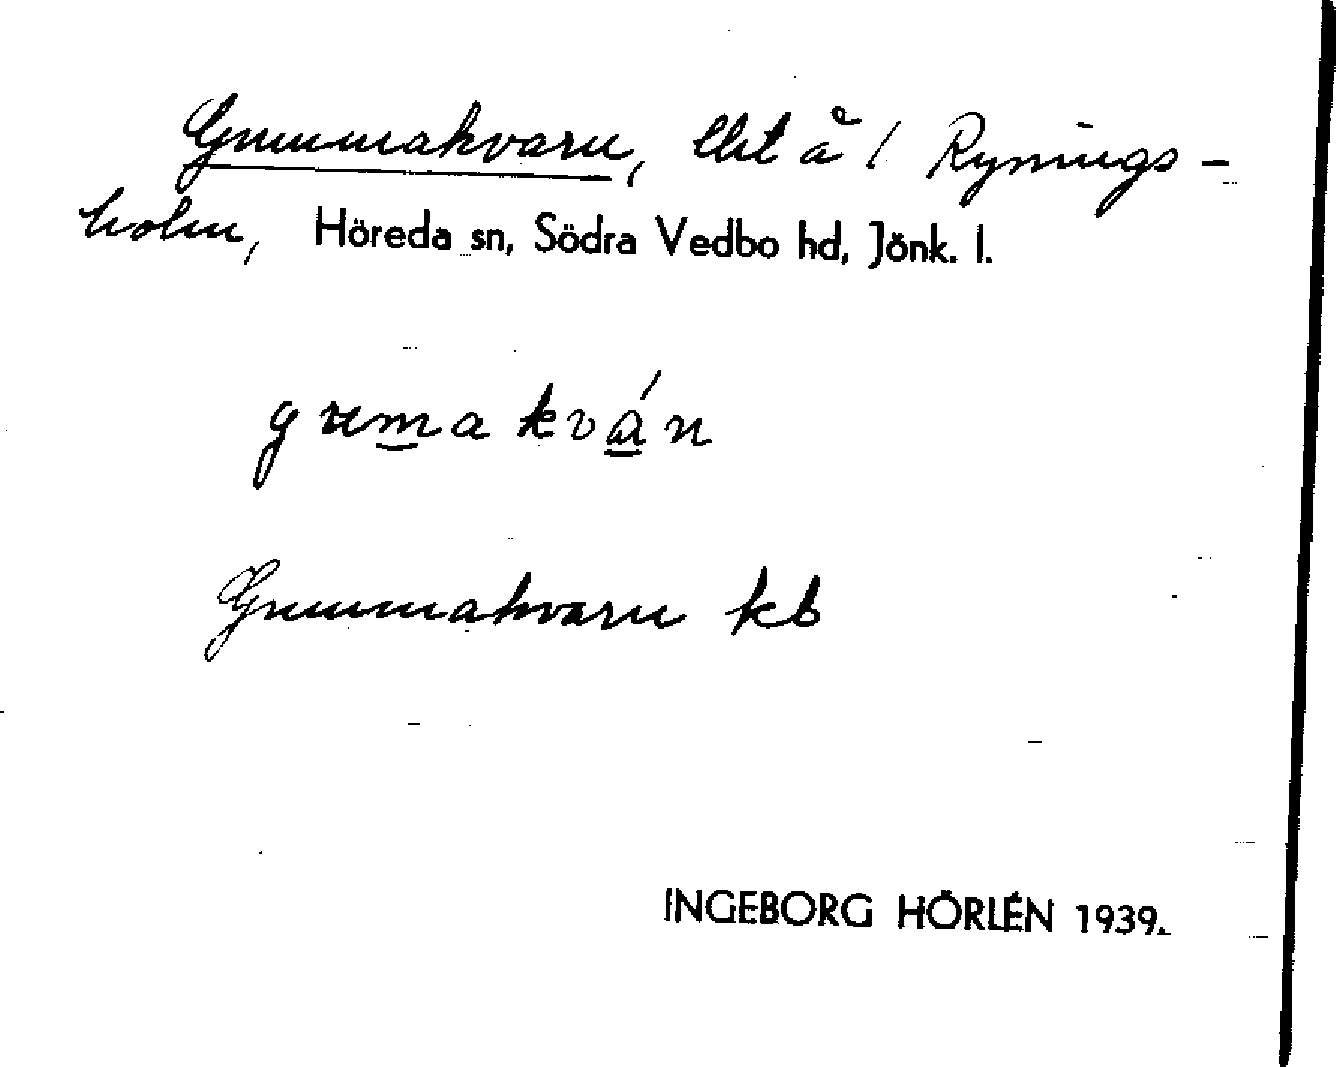 Grummakvarn, lht å 1 Rynings-
holm, Höreda sn, Södra Vedbo hd, Jönk. l.
gremakván
Grummakvarn kb
INGEBORG HÖRLÉN 1939.